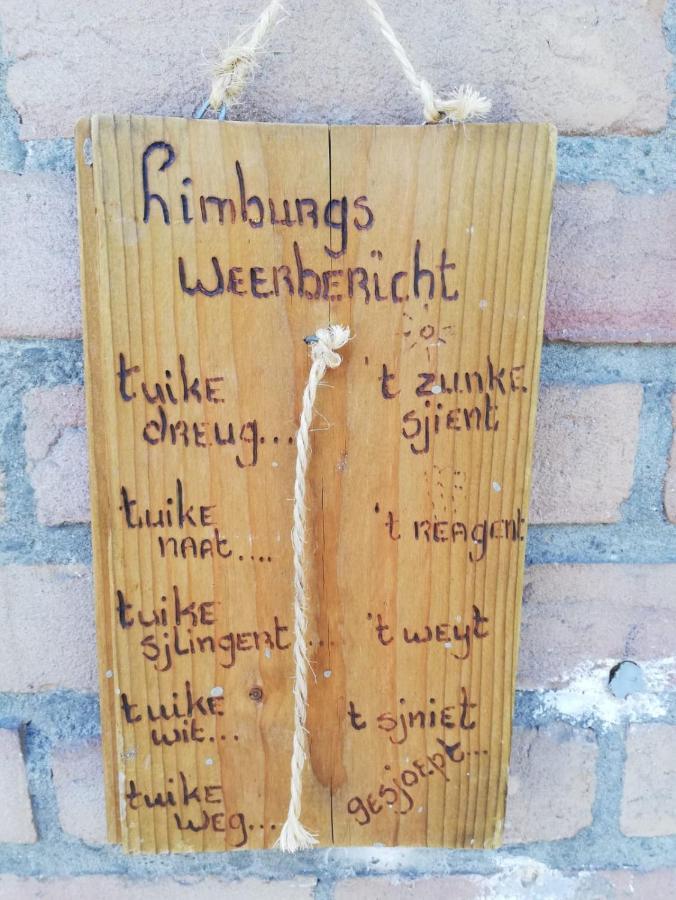 Limburgs
weerbericht
tuike
dreug...
't zunke
sjient
tuike
naat....
't reagent
tuike
sjlingert...
't weyt
tuike
wit...
t sjniet
tuike
weg...
gesjoept...